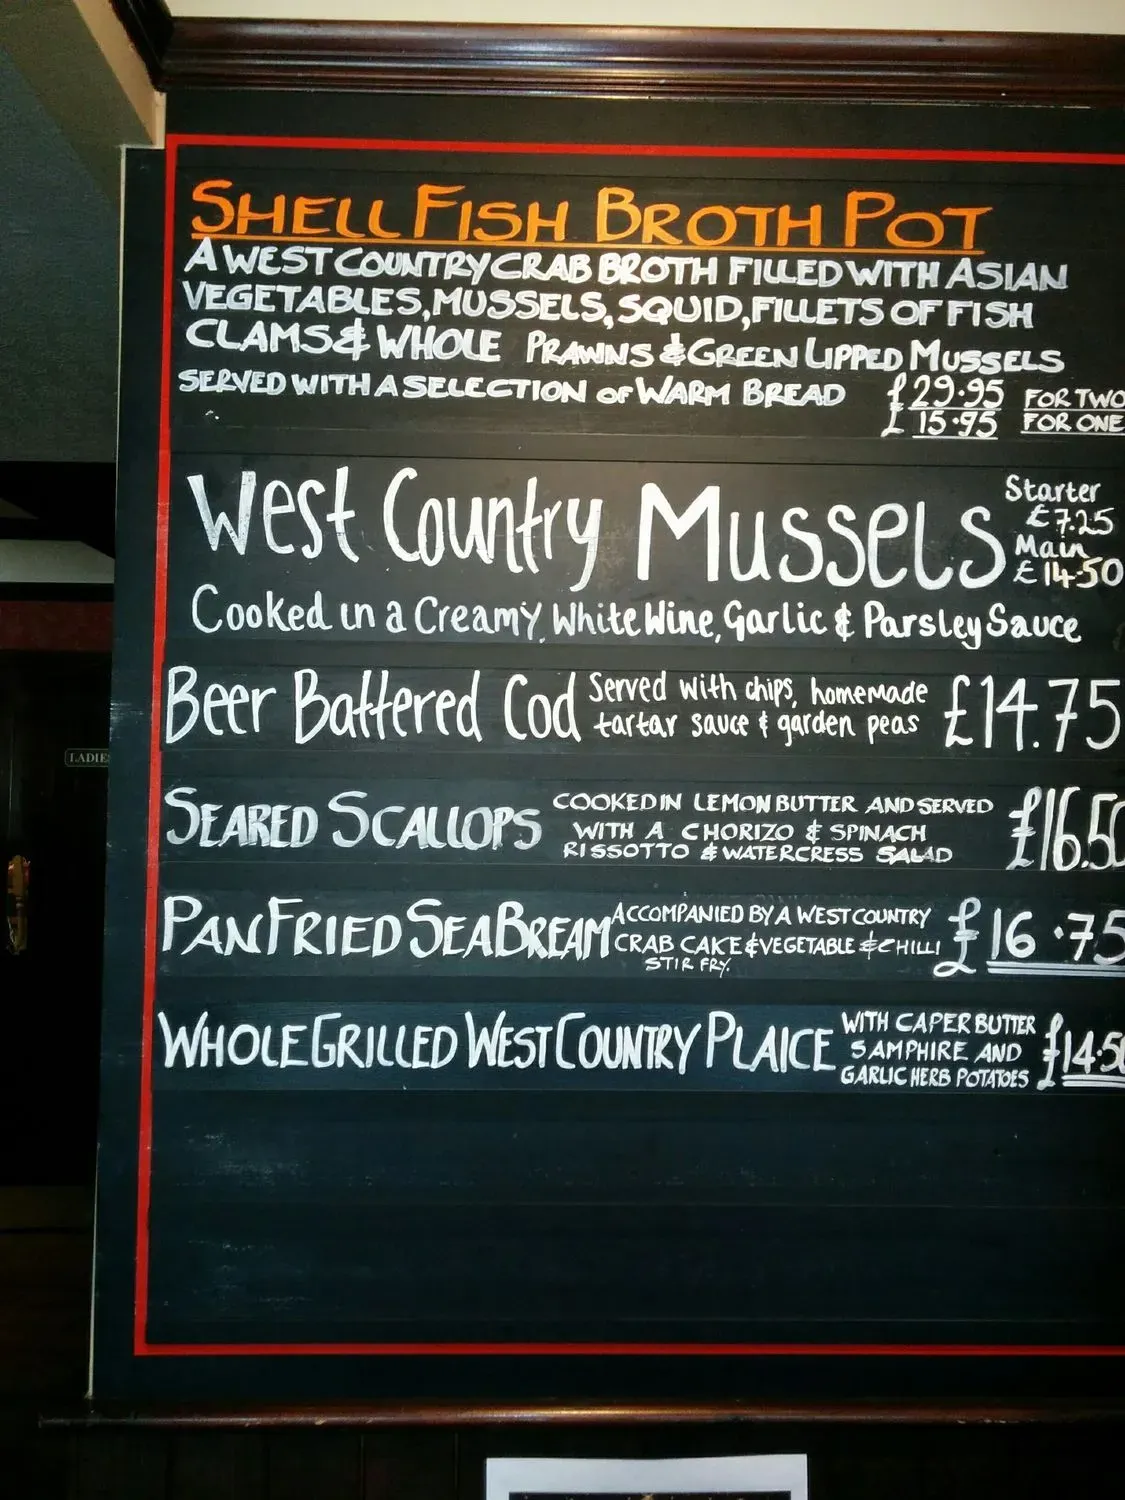 SHELLFISH BROTH POT
A WEST COUNTRY CRAB BROTH FILLED WITH ASIAN
VEGETABLES, MUSSELS, SQUID, FILLETS OF FISH
CLAMS & WHOLE PRAWNS & GREEN LIPPED MUSSELS
SERVED WITH A SELECTION OF WARM BREAD £29.95 FOR TWO
£15.95 FOR ONE
West Country Mussels
Starter
£7.25
Main
£14.50
Cooked in a Creamy, White Wine, Garlic & Parsley Sauce
Beer Battered Cod
Served with chips, homemade
tartar sauce & garden peas
£14.75
SEARED SCALLOPS
COOKED IN LEMON BUTTER AND SERVED
WITH A CHORIZO & SPINACH
RISSOTTO & WATERCRESS SALAD
£16.50
PAN FRIED SEA BREAM
ACCOMPANIED BY A WEST COUNTRY
CRAB CAKE & VEGETABLE & CHILLI
STIR FRY.
£16.75
WHOLE GRILLED WEST COUNTRY PLAICE
WITH CAPER BUTTER
SAMPHIRE AND
GARLIC HERB POTATOES
£14.50
LADIES